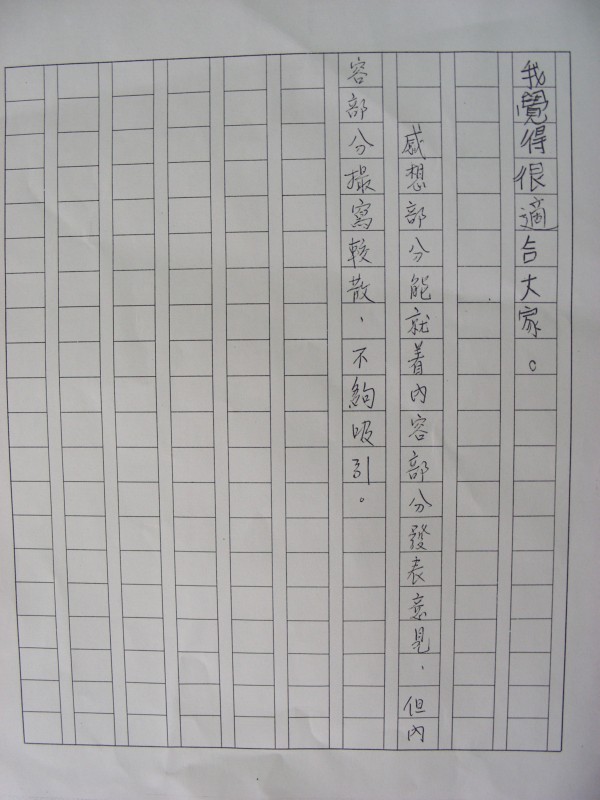 我覺得很適合大家。
感想部分能就着內容部分發表意見，但內
容部分撮寫較散，不夠吸引。